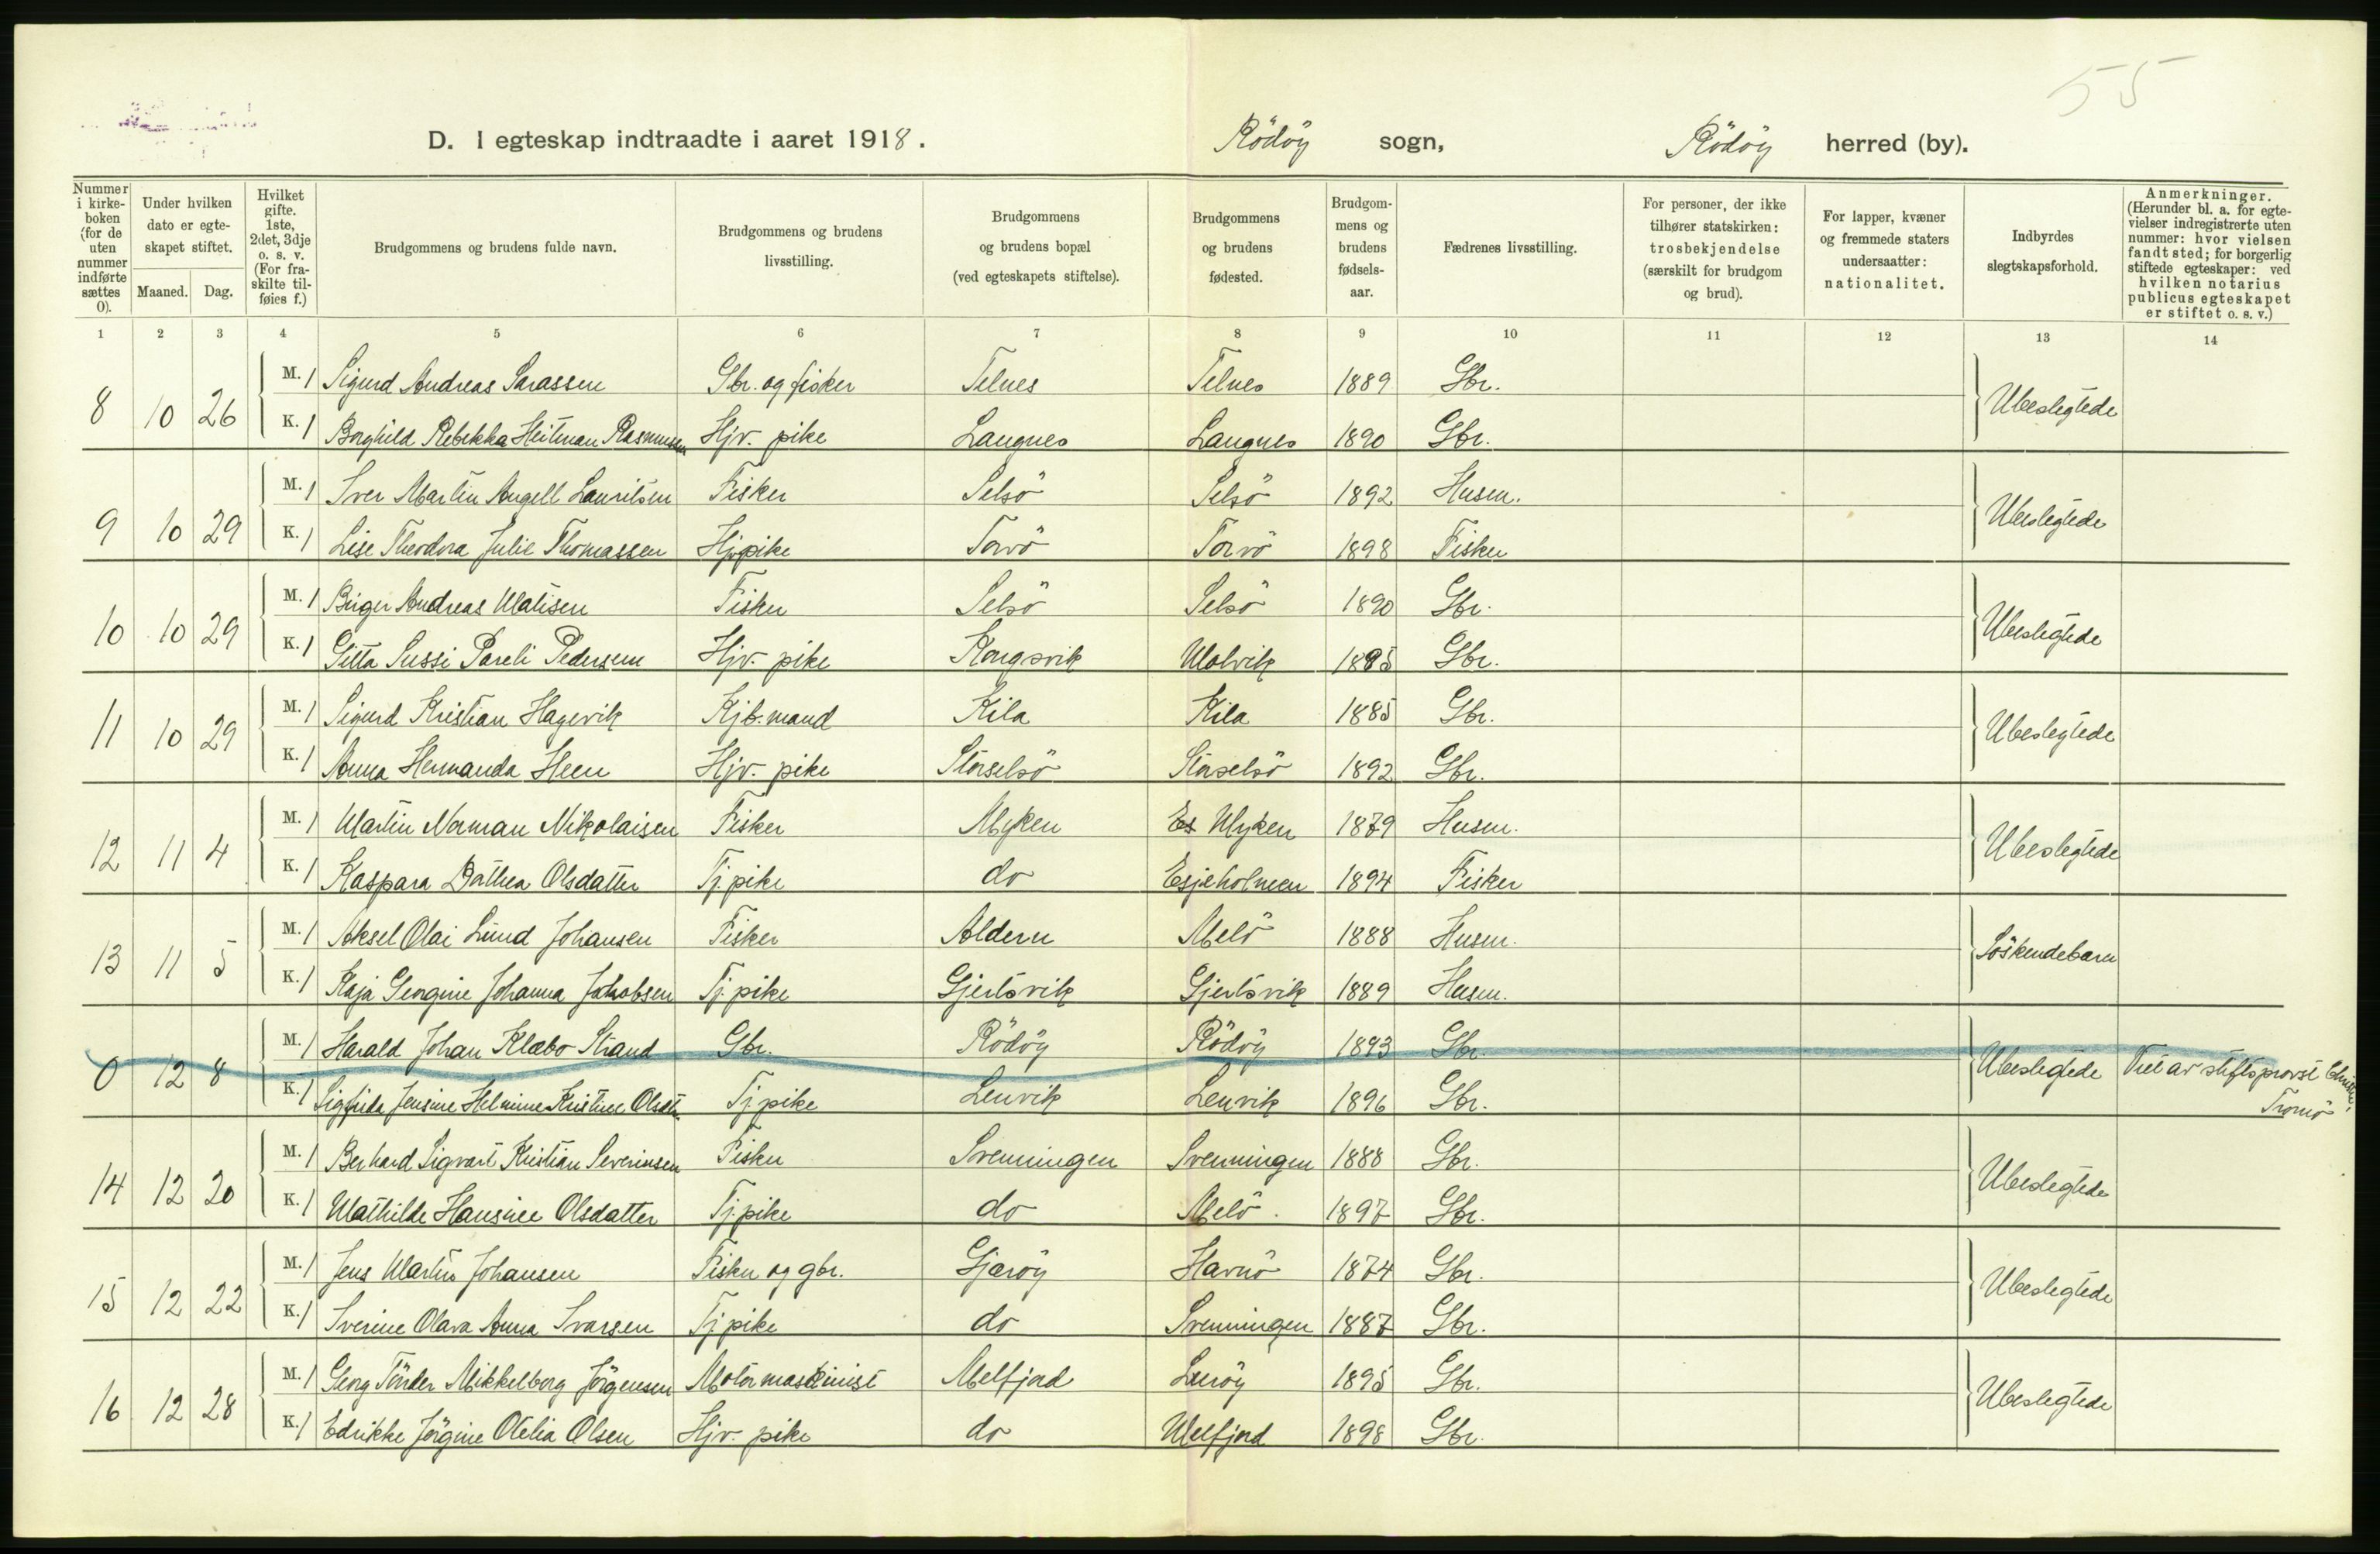 55
D. I egteskap indtraadte i aaret 1918. Rödöy sogn, Rödöy herred (by).
Nummer i kirke-boken (for de uten nummer indførte sættes 0).
Under hvilken dato er egte-skapet stiftet.
Maaned. Dag.
Hvilket gifte. 1ste, 2det, 3dje o. s. v. (For fra-skilte til-føies f.)
Brudgommens og brudens fulde navn.
Brudgommens og brudens livsstilling.
Brudgommens og brudens bopæl (ved egteskapets stiftelse).
Brudgommens og brudens fødested.
Brudgom-mens og brudens fødsels-aar.
Fædrenes livsstilling.
For personer, der ikke tilhører statskirken: trosbekjendelse (særskilt for brudgom og brud).
For lapper, kvæner og fremmede staters undersaatter: nationalitet.
Indbyrdes slegtskapsforhold.
Anmerkninger. (Herunder bl. a. for egte-vielser indregistrerte uten nummer: hvor vielsen fandt sted; for borgerlig stiftede egteskaper: ved hvilken notarius publicus egteskapet er stiftet o. s. v.)
1 2 3 4 5 6 7 8 9 10 11 12 13 14
8 10 26 M. 1 Sigurd Andreas Sarassen Gbr. og fisker Telnes Telnes 1889 Gbr. Ubeslegtede
K. 1 Borghild Rebekka Heitman Rasmussen Hjv. pike Langnes Langnes 1890 Gbr.
9 10 29 M. 1 Iver Martin Angell Lauritsen Fisker Selsö Selsö 1892 Husm. Ubeslegtede
K. 1 Lise Theodora Julie Thomassen Hjv pike Torvö Torvö 1898 Fisker
10 10 29 M. 1 Birger Andreas Matisen Fisker Selsö Selsö 1890 Gbr. Ubeslegtede
K. 1 Gitta Sussi Pareli Pedersen Hjv. pike Kongsvik Molvik 1895 Gbr.
11 10 29 M. 1 Sigurd Kristian Hagevik Kjb. mand Kila Kila 1885 Gbr. Ubeslegtede
K. 1 Anna Hermanda Heen Hjv. pike Storselsö Storselsö 1892 Gbr.
12 11 4 M. 1 Martin Norman Nikolaisen Fisker Myken Es Myken 1879 Husm. Ubeslegtede
K. 1 Kaspara Dorthea Olsdatter Tj. pike do Esjeholmen 1894 Fisker
13 11 5 M. 1 Aksel Olai Lund Johansen Fisker Aldern Melö 1888 Husm. Söskendebarn
K. 1 Kaja Georgine Johanna Jakobsen Tj. pike Gjertsvik Gjertsvik 1889 Husm.
0 12 8 M. 1 Harald Johan Klæbo Strand Gbr. Rödöy Rödöy 1893 Gbr. Ubeslegtede Viet av stiftsprovst
K. 1 Sigfrida Jensine Helmine Kristine Olsdtr. Tj. pike Lenvik Lenvik 1896 Gbr. Tromsö
14 12 20 M. 1 Berhard Sigvart Kristian Severinsen Fisker Svenningen Svenningen 1888 Gbr. Ubeslegtede
K. 1 Mathilde Hansine Olsdatter Tj. pike do Melö. 1897 Gbr.
15 12 22 M. 1 Jens Martin Johansen Fisker og gbr. Gjeröy Havnö 1874 Gbr. Ubeslegtede
K. 1 Sverine Olava Anna Ivarsen Tj. pike do Svenningen 1887 Gbr.
16 12 28 M. 1 Georg Tönder Mikkelborg Jörgensen Motormaskinist Melfjord Luröy 1895 Gbr. Ubeslegtede
K. 1 Edrikke Jörgine Otelia Olsen Hjv. pike do Melfjord 1898 Gbr.